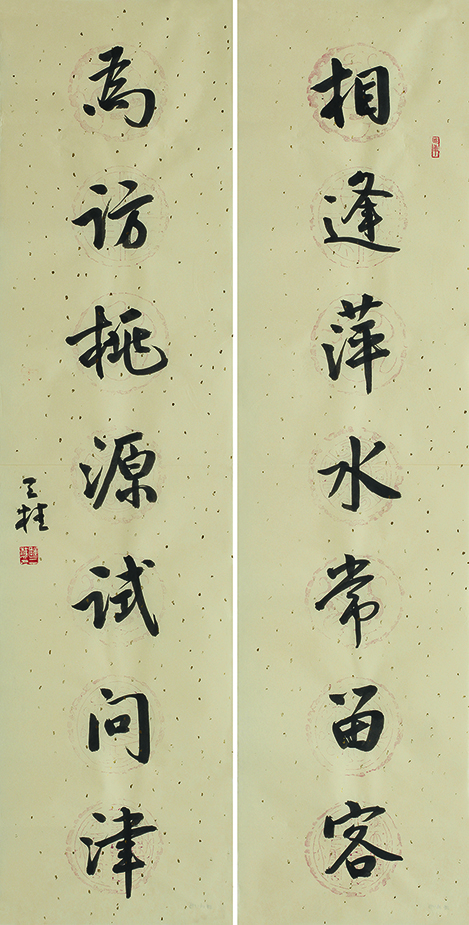 相逢萍水常留客
為访桃源试问津